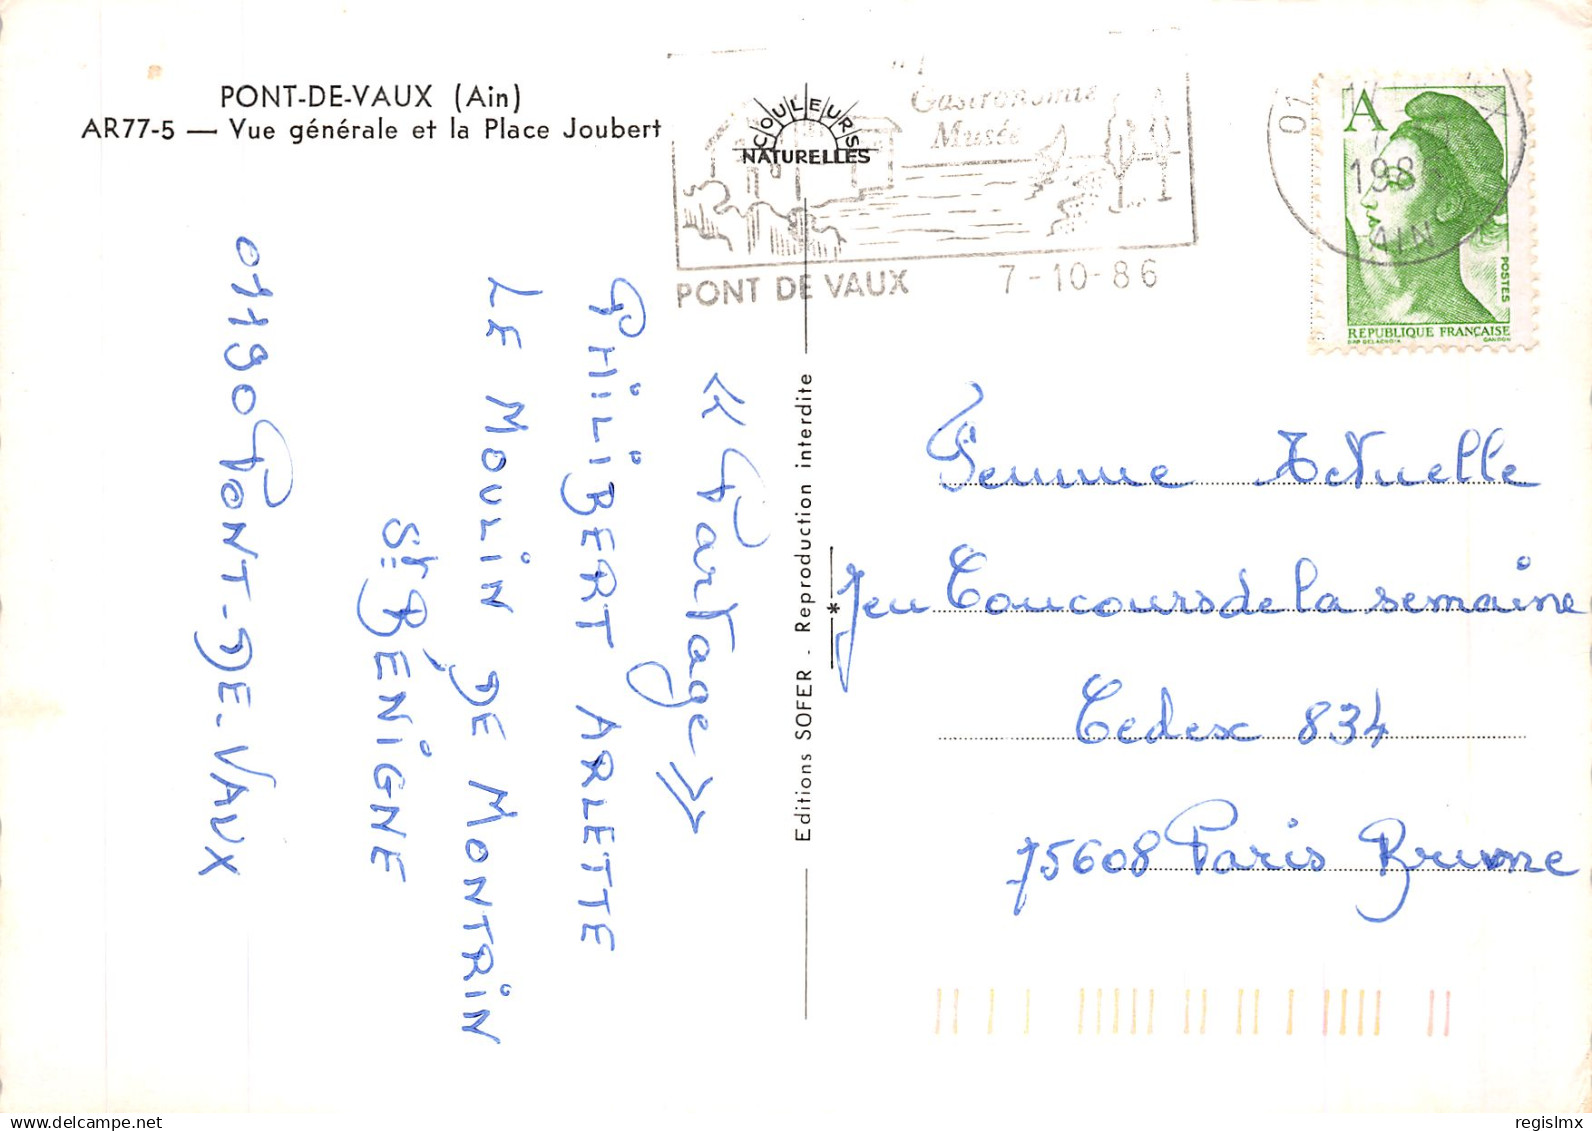 PONT-DE-VAUX (Ain)
AR77-5 — Vue générale et la Place Joubert
COULEURS
NATURELLES
Gastronomie
Musée
PONT DE VAUX 7-10-86
01
198
AIN
A
POSTES
REPUBLIQUE FRANÇAISE
DAP DELACROIX GANDON
« Partage »
PHILIBERT ARLETTE
LE MOULIN DE MONTRIN
St BÉNIGNE
01190 PONT-DE-VAUX
Editions SOFER - Reproduction interdite
*
Femme Actuelle
Jeu Concours de la semaine
Cedex 834
75608 Paris Brune
delcampe.net
regislmx